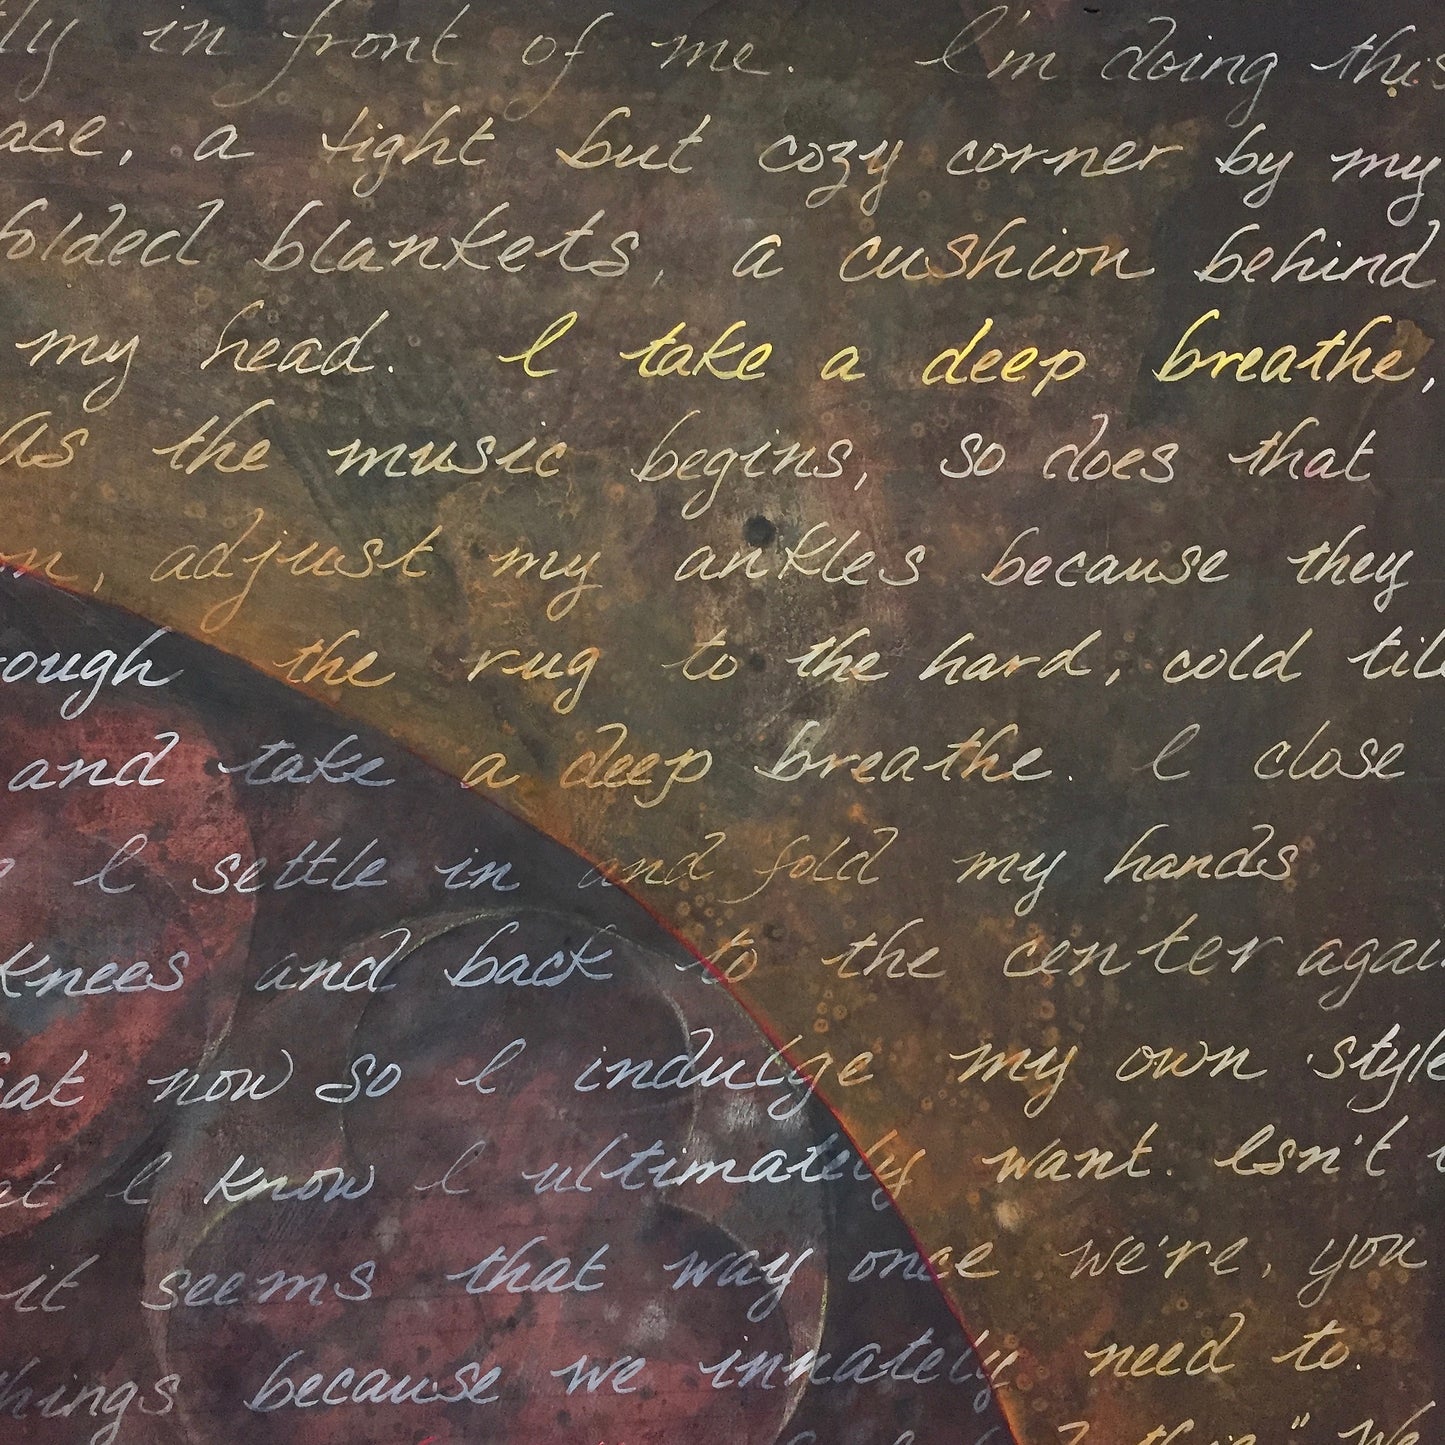 ly in front of me. I'm doing this
ace, a tight but cozy corner by my
folded blankets, a cushion behind
my head. I take a deep breathe,
As the music begins, so does that
n, adjust my ankles because they
ough the rug to the hard, cold til
and take a deep breathe. I close
I settle in and fold my hands
knees and back to the center again
at now so I indulge my own style
at I know I ultimately want. Isn't
it seems that way once we're, you
things because we innately need to.
" We